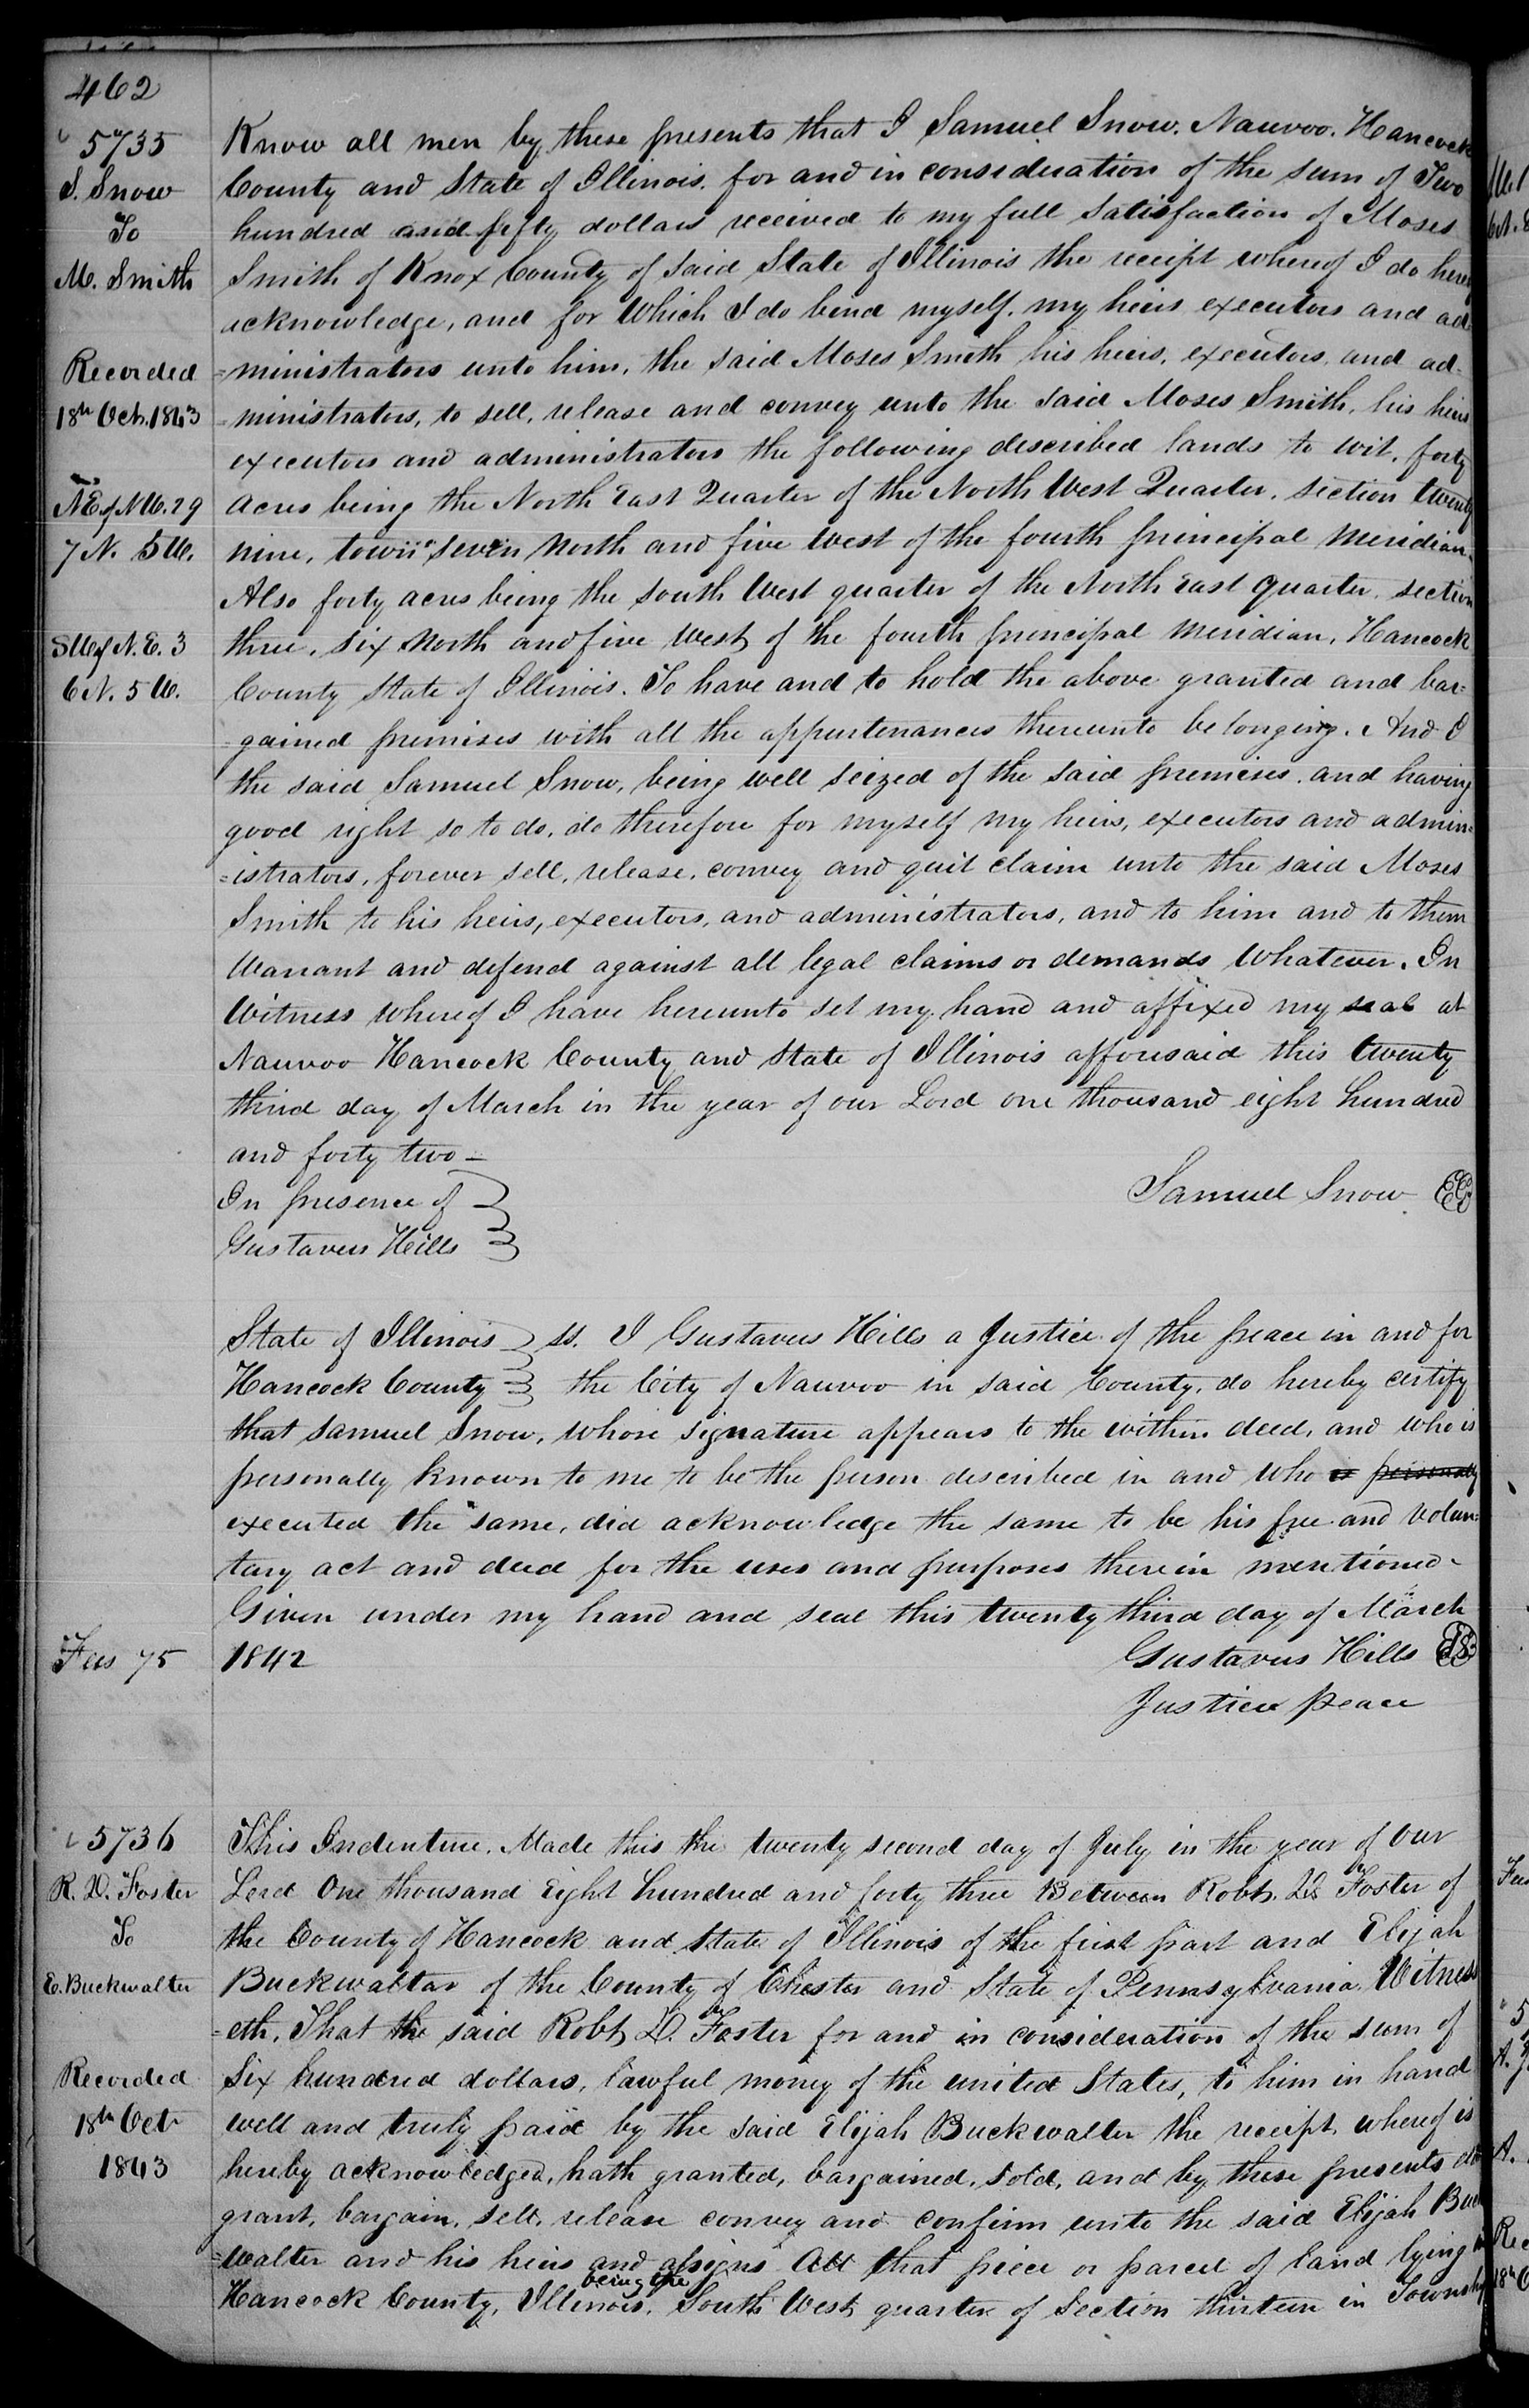 462
5735
S. Snow
To
M. Smith
Recorded
18th Oct. 1843
N.E. of N.W. 29
7 N. 5 W.
S.W. of N.E. 3
6 N. 5 W.
Know all men by these presents that I Samuel Snow. Nauvoo. Hancock
County and State of Illinois. for and in consideration of the sum of Two
hundred and fifty dollars received to my full satisfaction of Moses
Smith of Knox County of said State of Illinois the receipt whereof I do hereby
acknowledge, and for which I do bind myself. my heirs executors and ad
=ministrators unto him, the said Moses Smith his heirs, executors, and ad=
=ministrators, to sell, release and convey unto the said Moses Smith, his heirs
executors and administrators the following described lands to wit. forty
acres being the North East Quarter of the North West Quarter. section twenty
nine, town seven North and five West of the fourth principal Meridian.
Also forty acres being the south West quarter of the North East quarter. section
three, six North and five West of the fourth principal Meridian, Hancock
County State of Illinois. To have and to hold the above granted and bar=
=gained premises with all the appurtenances thereunto belonging. And I
the said Samuel Snow, being well seized of the said premises. and having
good right so to do, do therefore for myself my heirs, executors and admin=
=istrators, forever sell, release, convey and quit claim unto the said Moses
Smith to his heirs, executors, and administrators, and to him and to them
Warrant and defend against all legal claims or demands whatever. In
Witness whereof I have hereunto set my hand and affixed my seal at
Nauvoo Hancock County and State of Illinois afforesaid this twenty
third day of March in the year of our Lord one thousand eight hundred
and forty two -
In presence of
Samuel Snow
Gustavus Hills
State of Illinois ss. I Gustavus Hills a Justice of the peace in and for
Hancock County the City of Nauvoo in said County, do hereby certify
that Samuel Snow, whose signature appears to the within deed, and who is
personally known to me to be the person described in and who is personally
executed the same, did acknowledge the same to be his free and volun=
tary act and deed for the uses and purposes therein mentioned -
Given under my hand and seal this twenty third day of March
Fees 75
1842
Gustavus Hills
Justice peace
5736
R. D. Foster
To
E. Buckwalter
Recorded
18th Oct
1843
This Indenture. Made this the twenty second day of July in the year of our
Lord One thousand Eight hundred and forty three Between Robt. D. Foster of
the County of Hancock and State of Illinois of the first part and Elijah
Buckwaltar of the County of Chester and State of Pennsylvania. Witness
=eth, That the said Robt. D. Foster for and in consideration of the sum of
Six hundred dollars, lawful money of the united States, to him in hand
well and truly paid by the said Elijah Buckwalter the receipt whereof is
hereby acknowledged, hath granted, bargained, sold, and by these presents do
grant, bargain, sell, release convey and confirm unto the said Elijah Buck
=walter and his heirs and assigns All that piece or parcel of land lying in
being the
Hancock County, Illinois. South West quarter of Section thirteen in Township